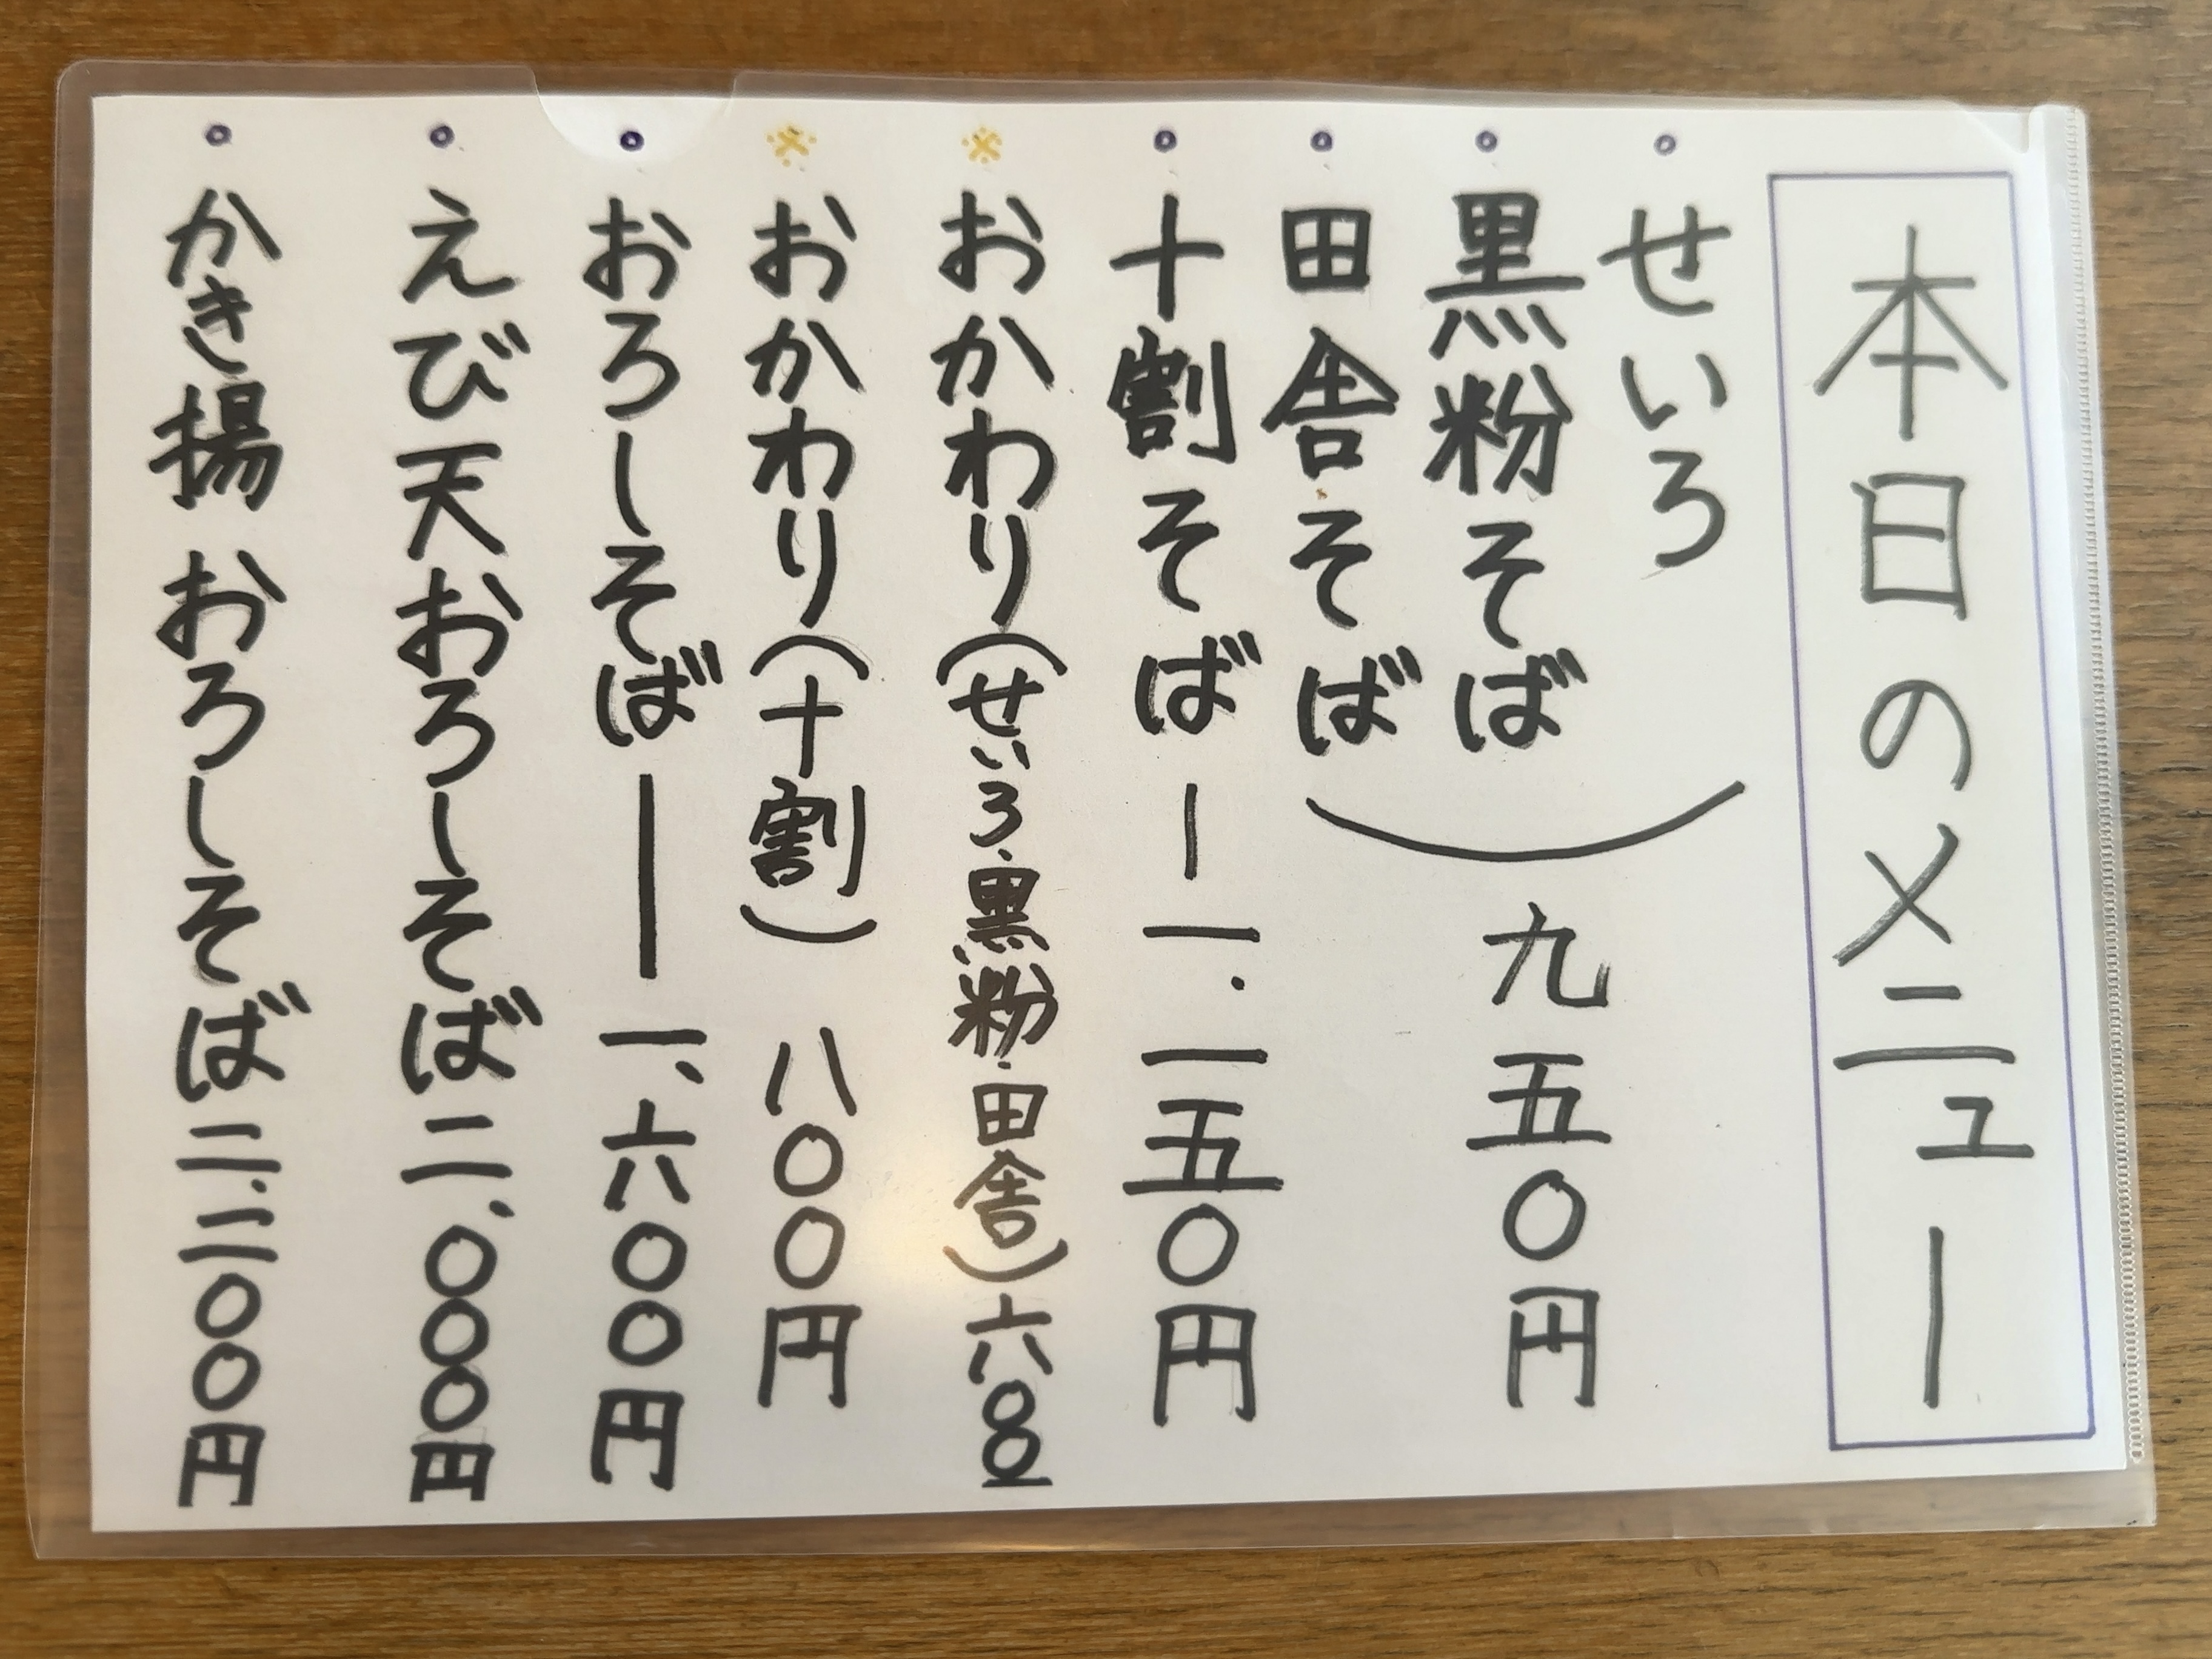 本日のメニュー
。せいろ
。黒粉そば
。田舎そば
）九五〇円
。十割そば ー 一、一五〇円
※おかわり（せいろ・黒粉・田舎）六〇〇
※おかわり（十割）八〇〇円
。おろしそば ー 一、六〇〇円
。えび天おろしそば 二、〇〇〇円
。かき揚おろしそば 二、二〇〇円